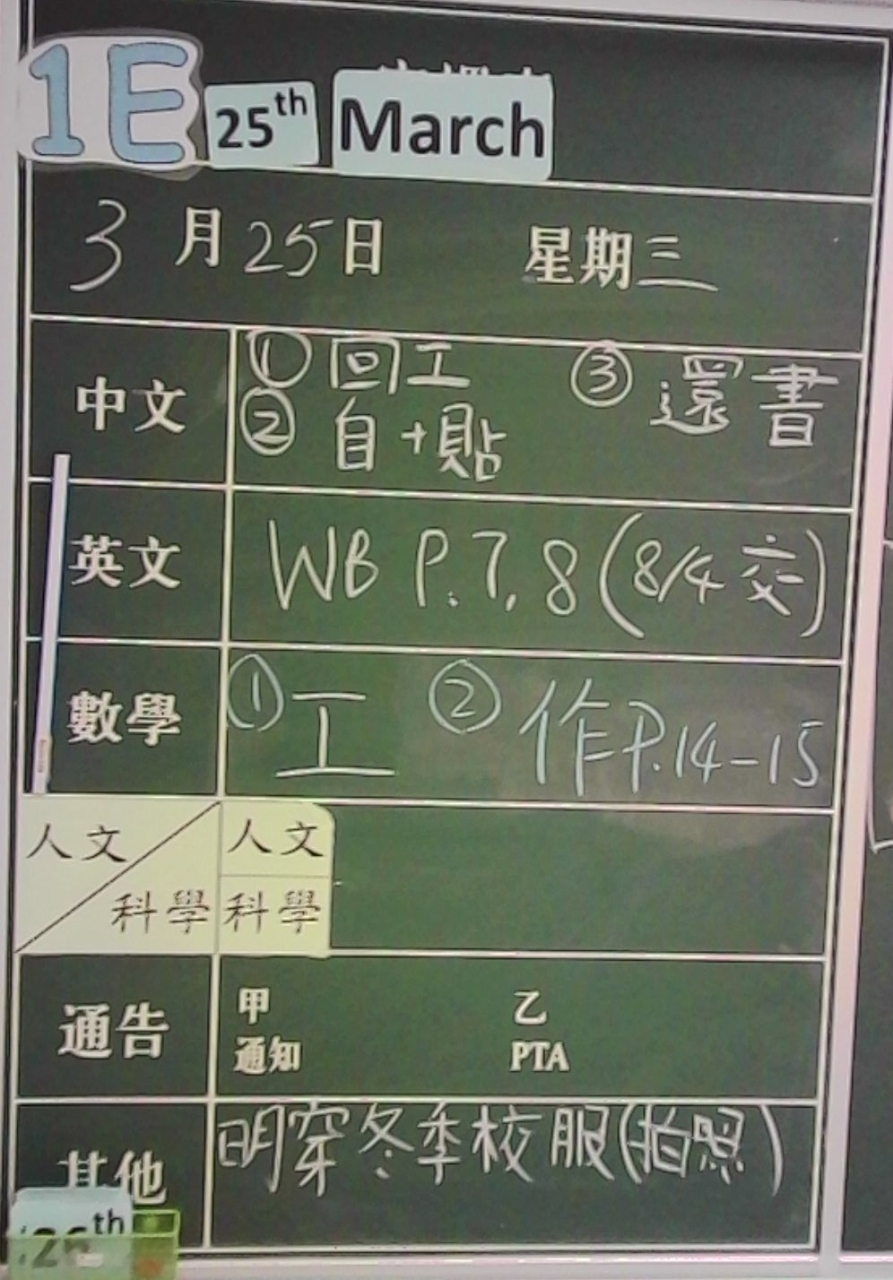 1E 25th March
3月25日 星期三
中文 ① 回工 ③ 還書
② 自+貼
英文 WB P.7, 8 (8/4 交)
數學 ① 工 ② 作P.14-15
人文 人文
科學 科學
通告 甲 乙
通知 PTA
其他 明穿冬季校服(拍照)
26th